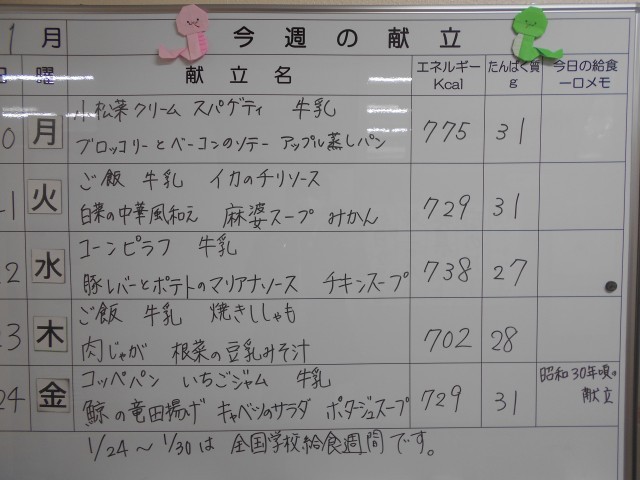 1 月 今週の献立
曜 献立名 エネルギー Kcal たんぱく質 g 今日の給食 一口メモ
0 月 小松菜クリーム スパゲティ 牛乳
ブロッコリーとベーコンのソテー アップル蒸しパン 775 31
1 火 ご飯 牛乳 イカのチリソース
白菜の中華風和え 麻婆スープ みかん 729 31
2 水 コーンピラフ 牛乳
豚レバーとポテトのマリアナソース チキンスープ 738 27
23 木 ご飯 牛乳 焼きししゃも
肉じゃが 根菜の豆乳みそ汁 702 28
24 金 コッペパン いちごジャム 牛乳
鯨の竜田揚げ キャベツのサラダ ポタージュスープ 729 31
昭和30年頃の
献立
1/24～1/30は 全国学校給食週間です。